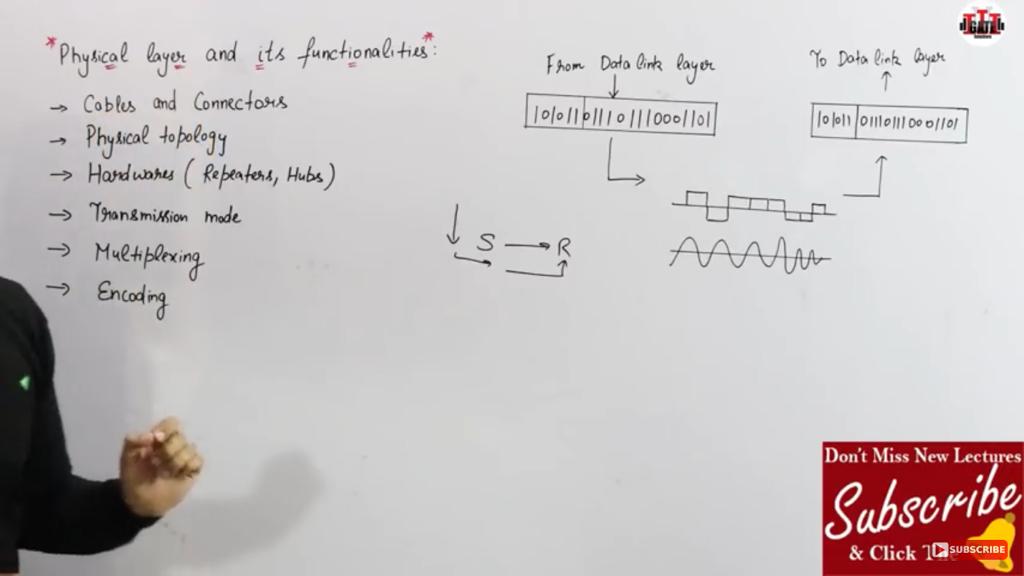 *Physical layer and its functionalities*:
→ Cables and Connectors
→ Physical topology
→ Hardwares (Repeaters, Hubs)
→ Transmission mode
→ Multiplexing
→ Encoding
From Data link layer
101011 011101110001101
S → R
To Data link layer
101011 011101110001101
GATE
Don't Miss New Lectures
Subscribe
& Click
SUBSCRIBE